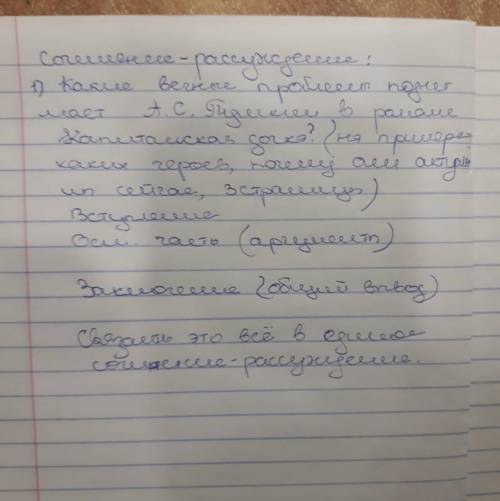 Сочинение-рассуждение:
1) Какие вечные проблемы подни
мает А.С. Пушкин в романе
Капитанская дочка? (на примере
каких героев, почему они актуаль
ны сейчас, 3 страницы)
Вступление
Осн. часть (аргументы)
Заключение (общий вывод)
Связать это всё в единое
сочинение-рассуждение.